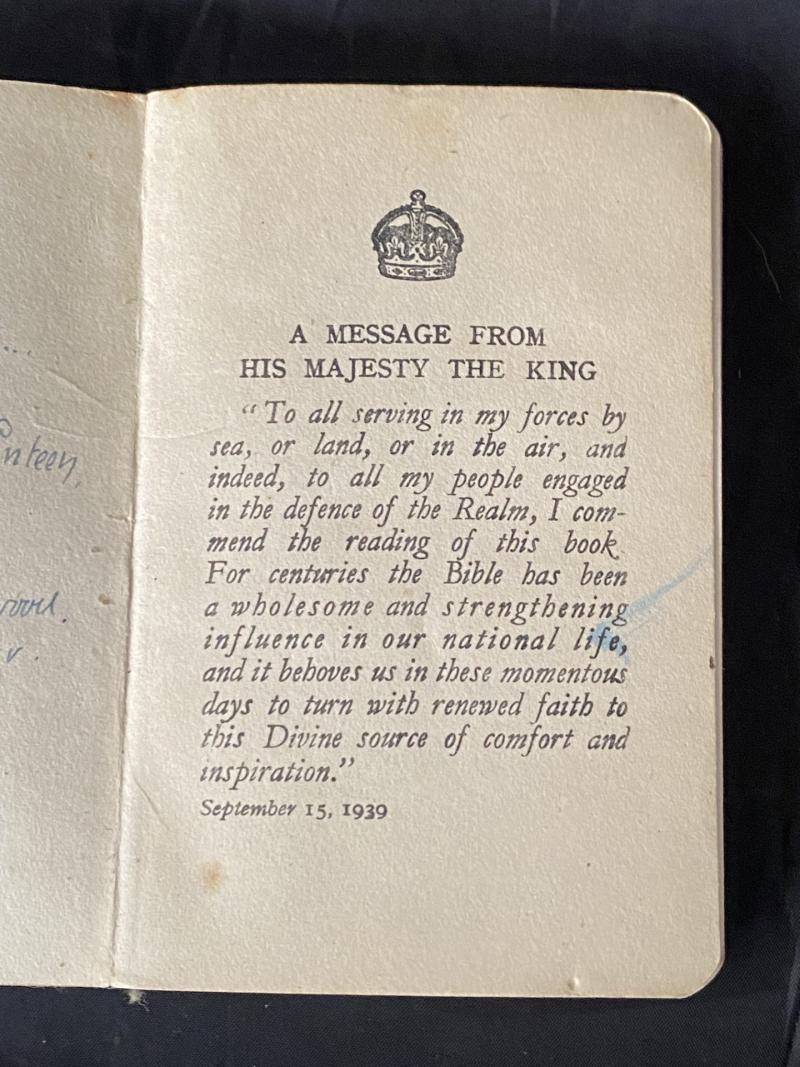 A MESSAGE FROM
HIS MAJESTY THE KING
"To all serving in my forces by
sea, or land, or in the air, and
indeed, to all my people engaged
in the defence of the Realm, I com-
mend the reading of this book
For centuries the Bible has been
a wholesome and strengthening
influence in our national life,
and it behoves us in these momentous
days to turn with renewed faith to
this Divine source of comfort and
inspiration."
September 15, 1939